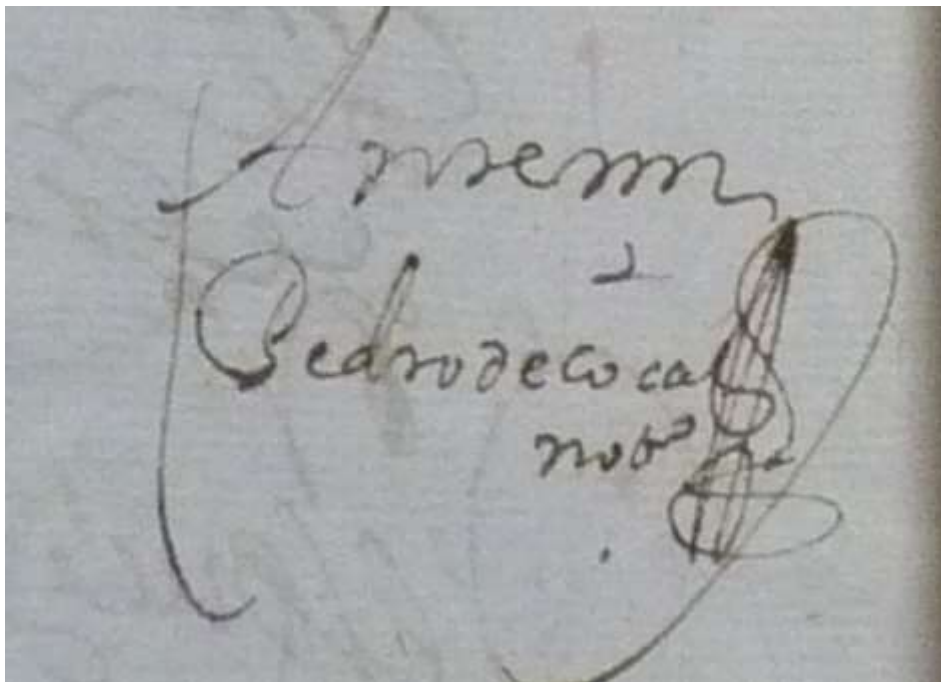 Ante mi
Pedro de Coca
not.º